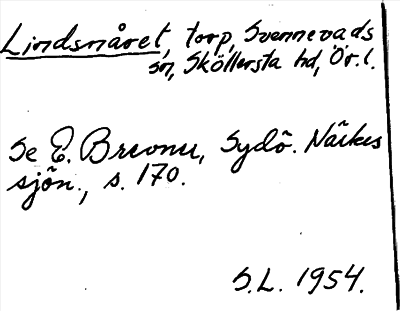 Lindsnåret, torp, Svennevads
sn, Sköllersta hd, Ör.l.
Se E. Brevner, Sydö. Närkes
sjön., s. 170.
S.L. 1954.